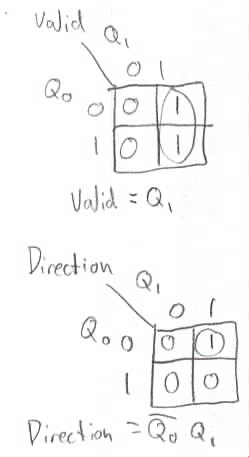 Valid Q₁
0 1
Q₀ 0 0 1
1 0 1
Valid = Q₁
Direction Q₁
0 1
Q₀ 0 0 1
1 0 0
Direction = Q̅₀ Q₁